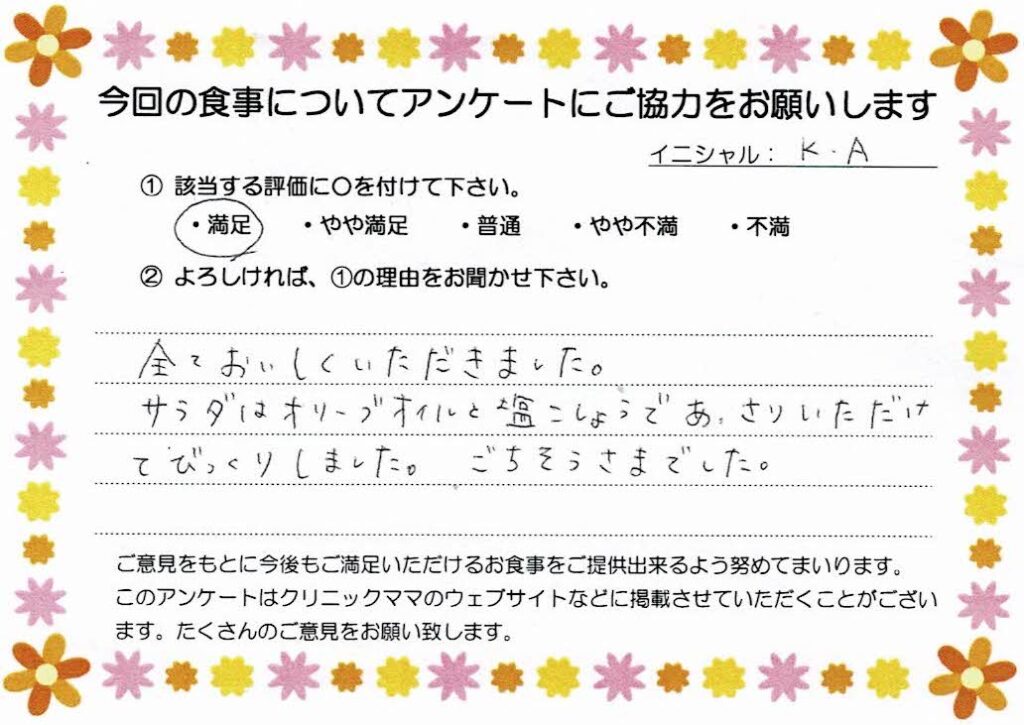 今回の食事についてアンケートにご協力をお願いします
イニシャル： K．A
① 該当する評価に〇を付けて下さい。
・満足 ・やや満足 ・普通 ・やや不満 ・不満
② よろしければ、①の理由をお聞かせ下さい。
全ておいしくいただきました。
サラダはオリーブオイルと塩こしょうであっさりいただけ
てびっくりしました。 ごちそうさまでした。
ご意見をもとに今後もご満足いただけるお食事をご提供出来るよう努めてまいります。
このアンケートはクリニックママのウェブサイトなどに掲載させていただくことがござい
ます。たくさんのご意見をお願い致します。